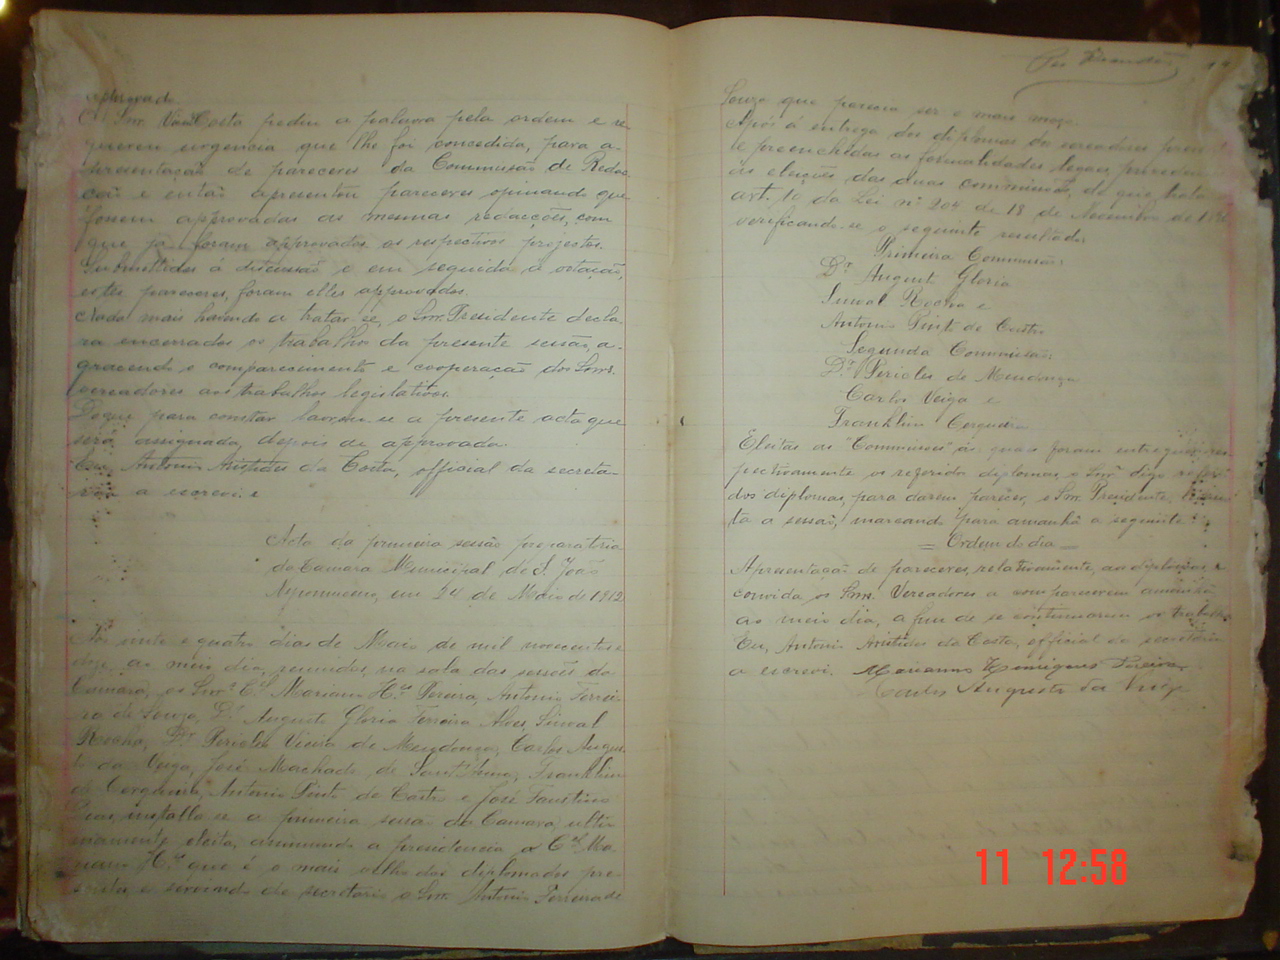 approvado.
O Snr. Vaz Costa pediu a palavra pela ordem e re-
quereu urgencia que lhe foi concedida, para a-
presentação de pareceres da Commissão de Redac-
ção e então apresentou pareceres opinando que
fossem approvadas as mesmas redacções, com
que já foram approvados os respectivos projectos.
Submettidos á discussão e em seguida á votação,
estes pareceres, foram elles approvados.
Nada mais havendo a tratar-se, o Snr. Presidente decla-
ra encerrados os trabalhos da presente sessão, a-
gradecendo o comparecimento e cooperação dos Snrs.
vereadores aos trabalhos legislativos.
Do que para constar lavrou-se a presente acta que
será assignada, depois de approvada.
Eu, Antonio Aristides da Costa, official da secreta-
ria a escrevi. e
Acta da primeira sessão preparatoria
da Camara Municipal de S. João
Nepomuceno, em 24 de Maio de 1912
Aos vinte e quatro dias de Maio de mil novecentos e
doze, ao meio dia, reunidos, na sala das sessões da
Camara, os Snrs. Cel. Marianno H.es Pereira, Antonio Ferrei-
ra de Souza, Dr. Augusto Gloria Ferreira Alves, Sinval
Rocha, Dr. Pericles Vieira de Mendonça, Carlos Augus-
to da Veiga, José Machado de Sant'Anna, Franklin
de Cerqueira, Antonio Pinto de Castro e José Faustino
Dias, installa-se a primeira sessão da Camara, ulti-
mamente eleita, assumindo a presidencia o Cel. Ma-
rianno H.es que é o mais velho dos diplomados pre-
sentes, e servindo de secretario o Snr. Antonio Ferreira de
Souza que parecia ser o mais moço.
Após á entrega dos diplomas dos vereadores
e preenchidas as formalidades legaes, procedeu-
ás eleições das duas commissões, de que trata
art. 10 da Lei nº 204 de 18 de Novembro de
verificando-se o seguinte resultado:
Primeira Commissão:
Dr. Augusto Gloria
Sinval Rocha e
Antonio Pinto de Castro
Segunda Commissão:
Dr. Pericles de Mendonça
Carlos Veiga e
Franklin Cerqueira
Eleitas as "Commissões" ás quaes foram entregues res-
pectivamente os referidos diplomas, o Snr. digo referi-
dos diplomas, para darem parecer, o Snr. Presidente, levan-
ta a sessão, marcando para amanhã a seguinte:
= Ordem do dia =
Apresentação de pareceres, relativamente, aos diplomas e
convida os Snrs. Vereadores a comparecerem amanhã
ao meio dia, a fim de se continuarem os trabalhos.
Eu, Antonio Aristides da Costa, official da secretaria
a escrevi. Marianno Henriques Pereira
Carlos Augusto da Veiga
11 12:58